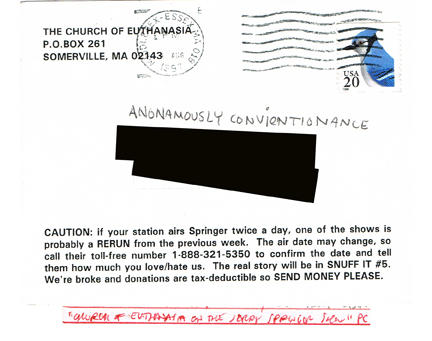 THE CHURCH OF EUTHANASIA
P.O.BOX 261
SOMERVILLE, MA 02143
MIDDLESEX-ESSEX MA 018
AUG
1997
USA
20
ANONAMOUSLY CONVIENTIONANCE
CAUTION: if your station airs Springer twice a day, one of the shows is
probably a RERUN from the previous week. The air date may change, so
call their toll-free number 1-888-321-5350 to confirm the date and tell
them how much you love/hate us. The real story will be in SNUFF IT #5.
We're broke and donations are tax-deductible so SEND MONEY PLEASE.
"CHURCH OF EUTHANASIA ON THE JERRY SPRINGER SHOW" PC